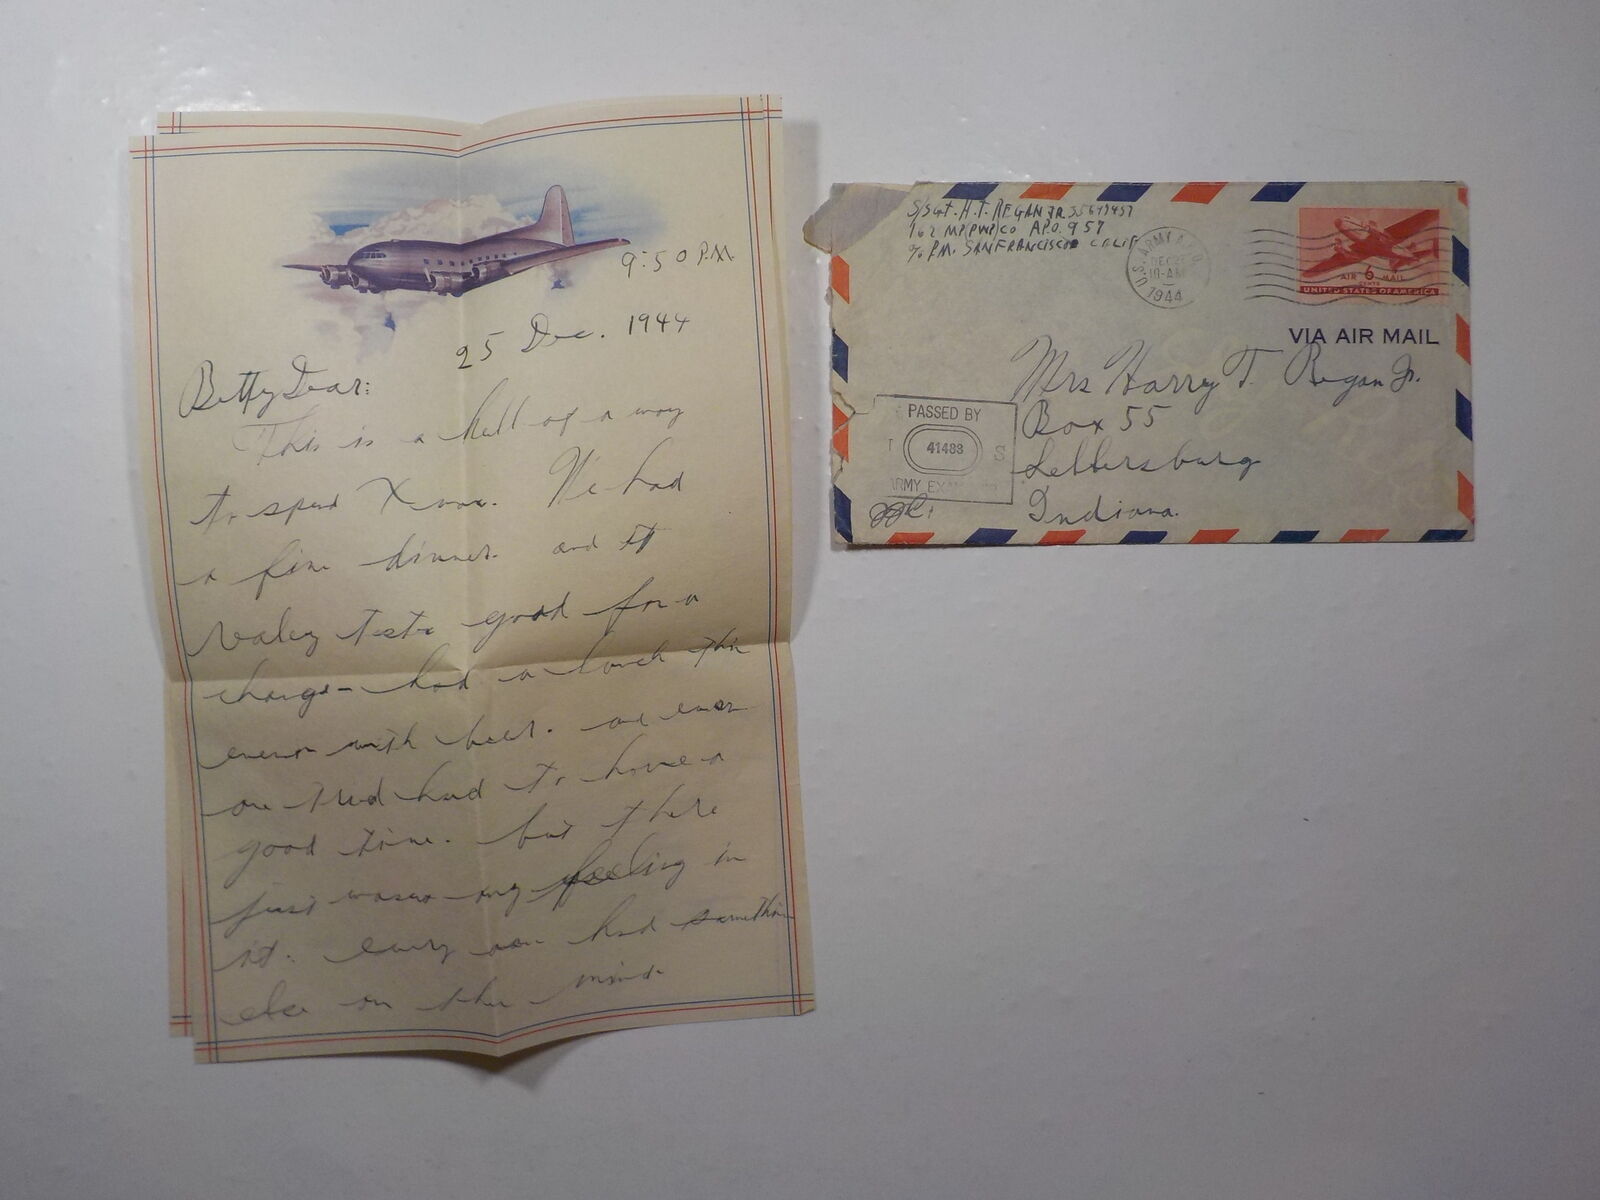 9:50 P.M.
25 Dec. 1944
Betty Dear:
This is a hell of a way
to spend Xmas. We had
a fine dinner. and it
realey tasts good for a
change- had a lunch this
even with beer. and even
one tried hard to have a
good time. but there
just wasen any feeling in
it. every one had somethin
else on the mind.
S/Sgt. H.T. REGAN JR. 35699457
162 MP(PWP)CO APO. 957
c/o P.M. SANFRANCISCO CALIF
U.S. ARMY A.P.O.
DEC 2
10-AM
1944
AIR 6 MAIL
CENTS
UNITED STATES OF AMERICA
VIA AIR MAIL
Mrs Harry T. Regan Jr.
Box 55
Indiana.
PASSED BY
41483
S
ARMY EXAM